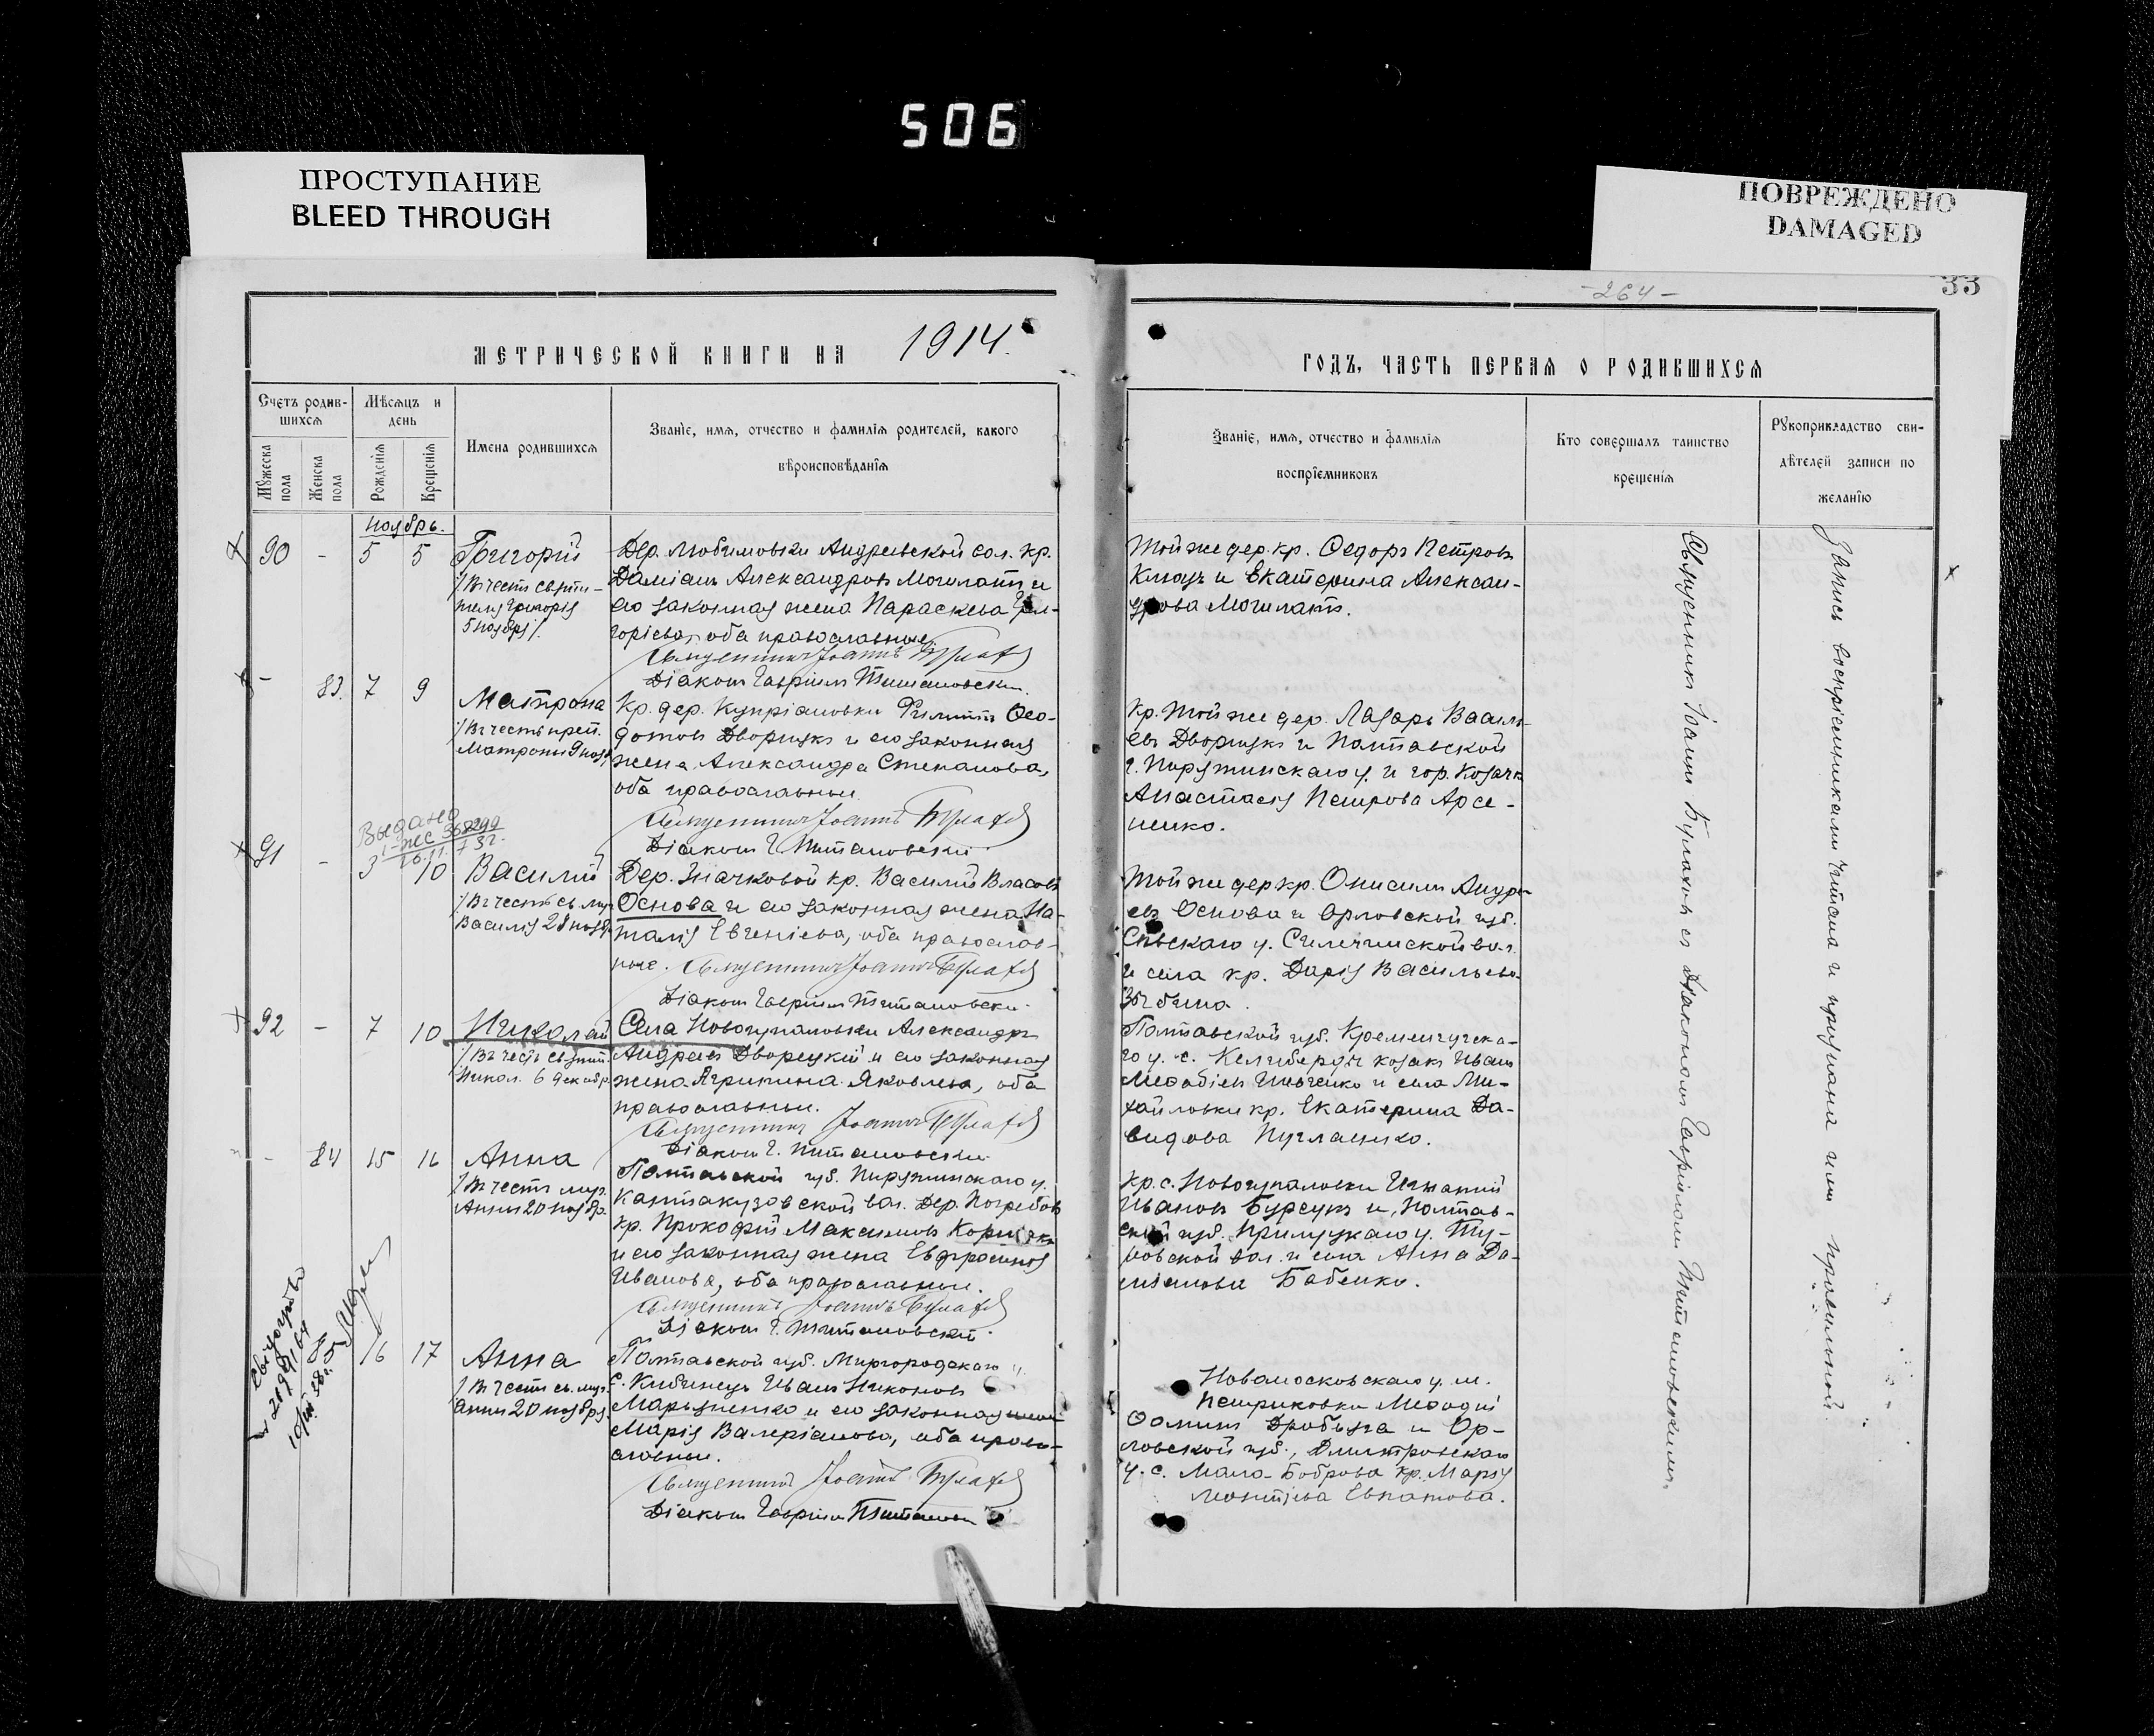 506
ПРОСТУПАНИЕ
BLEED THROUGH
ПОВРЕЖДЕНО
DAMAGED
33
-264-
МЕТРИЧЕСКОЙ КНИГИ НА 1914.
ГОДЪ, ЧАСТЬ ПЕРВАЯ О РОДИВШИХСЯ
Счетъ родив-
шихся
Мужеска пола
Женска пола
Мѣсяцъ и
день
Рожденія
Крещенія
Имена родившихся
Званіе, имя, отчество и фамилія родителей, какого
вѣроисповѣданія
Званіе, имя, отчество и фамилія
воспріемниковъ
Кто совершалъ таинство
крещенія
Рукоприкладство сви-
дѣтелей записи по
желанію
Ноябрь.
90 - 5 5 Григорій
/Въ честь святи-
теля Григорія
5 ноября/.
Дер. Любимовки Андреевской вол. кр.
Даміанъ Александровъ Могилатъ и
его законная жена Параскева Гри-
горіева, оба православные
Священникъ Іоаннъ Булахъ
Діаконъ Гавріилъ Титановскій.
Той же дер. кр. Ѳедоръ Петровъ
Ключъ и Екатерина Алексан-
дрова Могилатъ.
- 83. 7 9 Матрона
/Въ честь преп.
Матроны 9 нояб.
Кр. дер. Купріановки Филиппъ Ѳео-
дотовъ Дворцукъ и его законная
жена Александра Степанова,
оба православные
Священникъ Іоаннъ Булахъ
Діаконъ Г. Титановскій
Кр. той же дер. Лазарь Василь-
евъ Дворцукъ и Полтавской
г. Пирятинскаго у. и гор. козачк
Анастасія Петрова Арсе-
ненко.
Выдано
16.11.
91 - 3 10 Василій
/Въ честь св. муч.
Василія 28 нояб.
Дер. Значковой кр. Василій Власовъ
Основа и его законная жена На-
талія Евгеніева, оба православ-
ные. Священникъ Іоаннъ Булахъ
Діаконъ Гавріилъ Титановскій.
Той же дер кр. Онисимъ Андре-
евъ Основа и Орловской губ.
Сѣвскаго у.
и села кр. Дарія Васильева
92 - 7 10 Николай
/Въ честь св. свят.
Никол. 6 декабр.
Села Новогупаловки Александръ
Андреевъ Дворецкій и его законная
жена Агрипина Яковлева, оба
православные.
Священникъ Іоаннъ Булахъ
Діаконъ Г. Титановскій
Полтавской губ. Кременчугска-
го у. с. Келеберды козакъ Иванъ
Меѳодіевъ и села Ми-
хайловки кр. Екатерина Да-
видова
- 84 15 16 Анна
/Въ честь муч.
Анны 20 ноябр.
Полтавской губ. Пирятинскаго у.
Кантакузовской вол. дер. Погребовъ
кр. Прокофій Максимовъ
и его законная жена Евфросинія
Иванова, оба православные.
Священникъ Іоаннъ Булахъ
Діаконъ Г. Титановскій.
Кр. с. Новогупаловки Игнатій
Ивановъ Бурсукъ и Полтав-
ской губ. Прилуцкаго у.
вол. и села Анна Да-
міанова Бабенко.
16 17 Анна
/Въ честь св. муч.
Анны 20 ноября.
Полтавской губ. Миргородскаго у.
с. Кибинецъ Иванъ Никоновъ
и его законная жена
Марія Валеріанова, оба право-
славные.
Священникъ Іоаннъ Булахъ
Діаконъ Гавріилъ Титановскій
Новомосковскаго у. м.
Петриковки Меѳодій
Ѳоминъ и Ор-
ловской губ., Дмитровскаго
у. с. Мало-Боброва кр. Марія
Священникъ Іоаннъ Булахъ съ діакономъ Гавріиломъ Титановскимъ.
Запись воспріемниками читана и признана ими правильной.